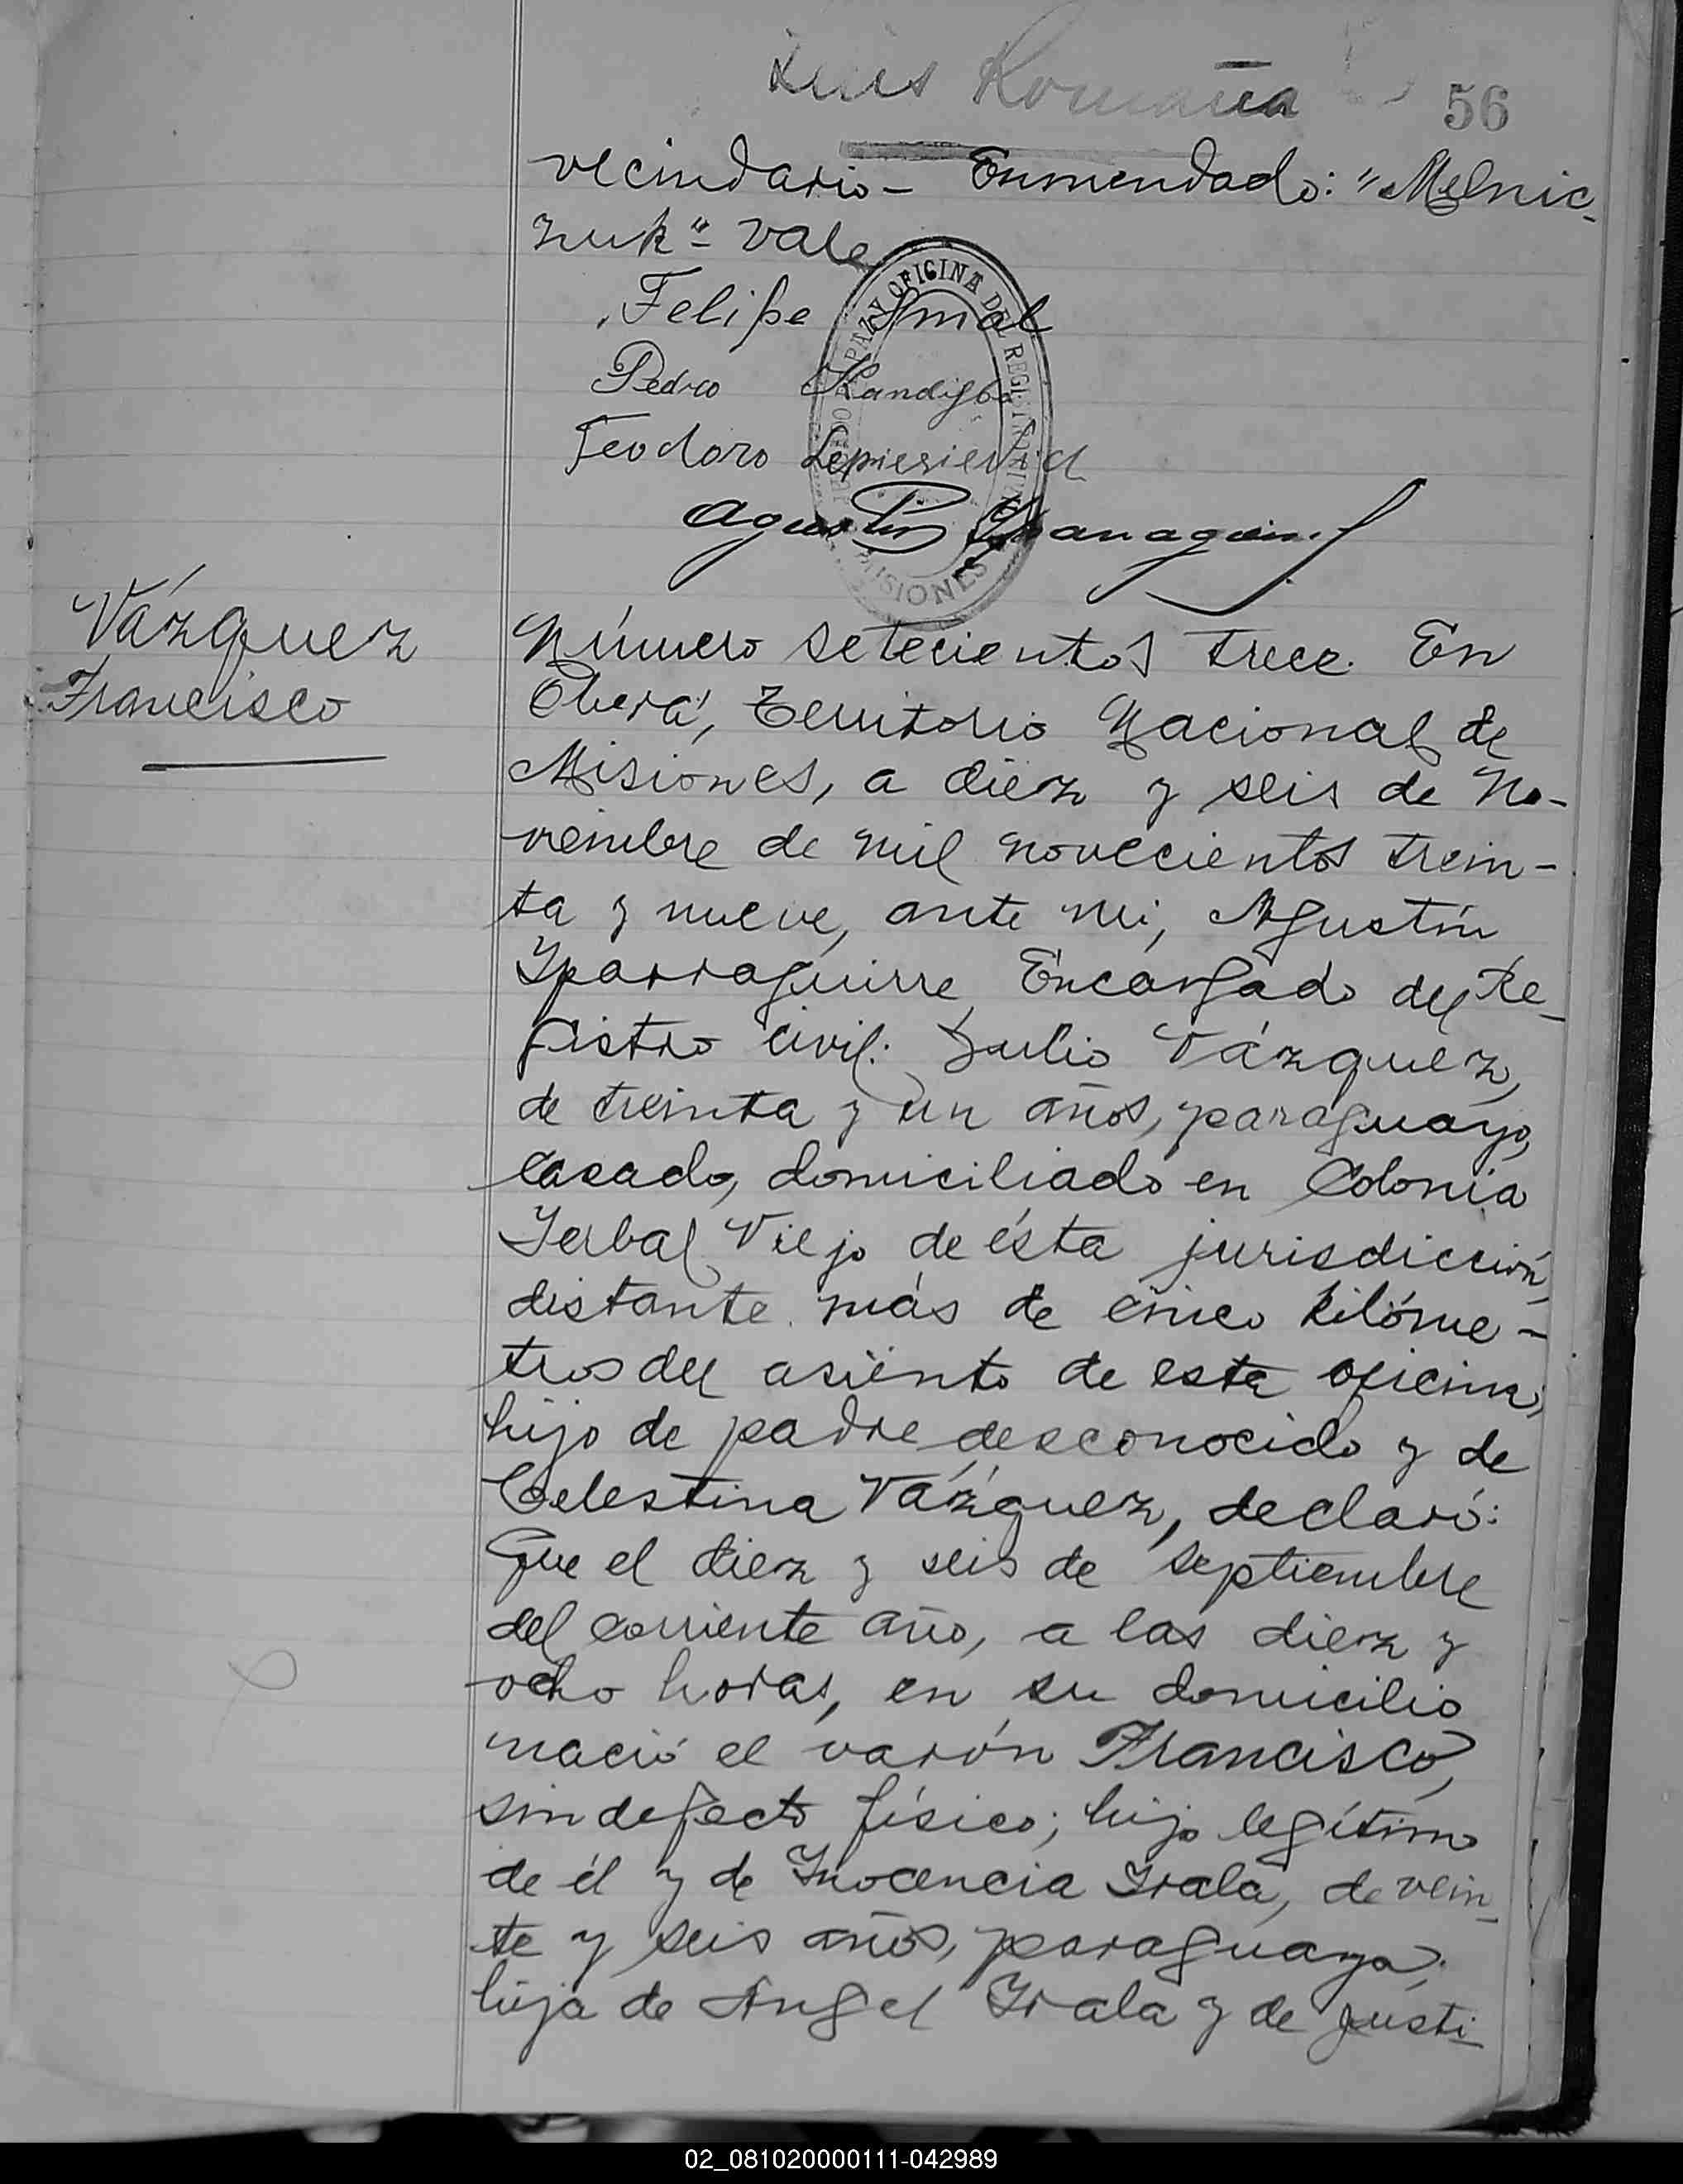 Luis Romaña
56
vecindario - Enmendado: "Melnic-
zuk" - vale
Felipe Smal
Pedro
Teodoro
Agustin Yparraguirre
JUZGADO DE PAZ Y OFICINA DEL REGISTRO CIVIL
MISIONES
Vázquez
Francisco
Número setecientos trece. En
Oberá, Territorio Nacional de
Misiones, a diez y seis de No-
viembre de mil novecientos trein-
ta y nueve, ante mi, Agustín
Yparraguirre Encargado del Re-
gistro Civil: Julio Vázquez,
de treinta y un años, paraguayo,
casado, domiciliado en Colonia
Yerbal Viejo de ésta jurisdicción,
distante más de cinco kilóme-
tros del asiento de esta oficina,
hijo de padre desconocido y de
Celestina Vázquez, declaró:
Que el diez y seis de septiembre
del corriente año, a las diez y
ocho horas, en su domicilio
nació el varón Francisco,
sin defecto físico; hijo legítimo
de él y de Inocencia Irala, de vein-
te y seis años, paraguaya,
hija de Angel Irala y de Justi-
02_081020000111-042989